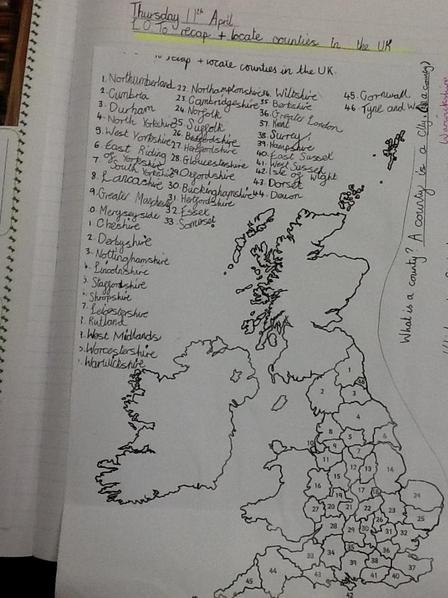 Thursday 11th April
L.O To recap + locate counties in the UK
recap + locate counties in the UK.
1. Northumberland
2. Cumbria
3. Durham
4. North Yorkshire
5. West Yorkshire
6. East Riding
of Yorkshire
7. South Yorkshire
8. Lancashire
9. Greater
0. Merseyside
1. Cheshire
2. Derbyshire
3. Nottinghamshire
Lincolnshire
Staffordshire
Shropshire
7. Leicestershire
Rutland
West Midlands
Worcestershire
Warwickshire
22. Northamptonshire
23. Cambridgeshire
24. Norfolk
25. Suffolk
26. Bedfordshire
27. Hertfordshire
28. Gloucestershire
29. Oxfordshire
30. Buckinghamshire
31. Hertfordshire
32. Essex
33. Somerset
Wiltshire
35. Berkshire
36. Greater London
37. Kent
38. Surrey
39. Hampshire
40. East Sussex
41. West Sussex
42. Isle of Wight
43. Dorset
44. Devon
45. Cornwall
46. Tyne and We
What is a county? A county is a city
1
2
3
4
8
5
6
10
7
11
12
13
14
15
16
19
17
18
24
27
20
21
22
23
25
28
29
30
31
32
33
34
35
36
44
43
39
38
37
45
41
40
42